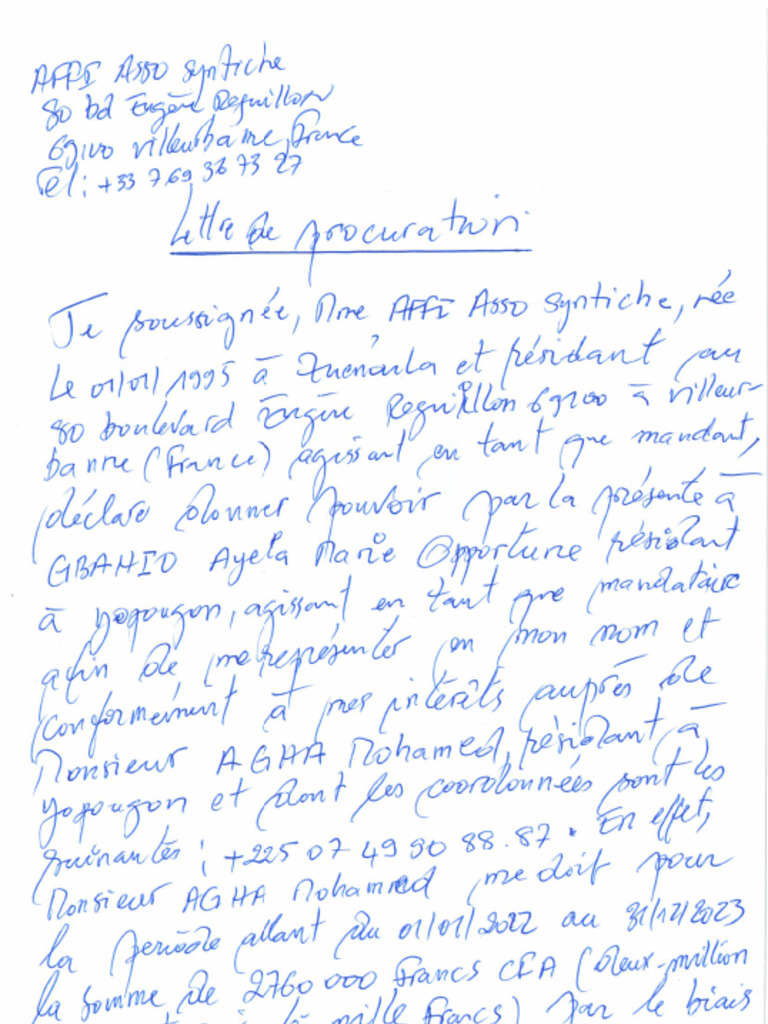 AFFI Asso Syntiche
80 bd Eugène Reguillon
69100 villeurbanne, France
Tel: +33 7 69 36 73 27
Lettre de procuration
Je soussignée, Mme AFFI Asso Syntiche, née
le 01/01/1995 à Zuénoula et résidant au
80 boulevard Eugène Reguillon 69100 à villeur-
banne (France) agissant en tant que mandant,
déclare donner pouvoir par la présente à
GBAHID Ayela Marie Opportune résidant
à yopougon, agissant en tant que mandataire
afin de me représenter en mon nom et
conformément à mes intérêts auprès de
Monsieur AGHA Mohamed, résidant à
yopougon et dont les coordonnées sont les
suivantes : +225 07 49 90 88 87. En effet,
Monsieur AGHA Mohammed me doit pour
la période allant du 01/01/2022 au 31/12/2023
la somme de 2760 000 Francs CFA (deux-million
mille Francs) par le biais